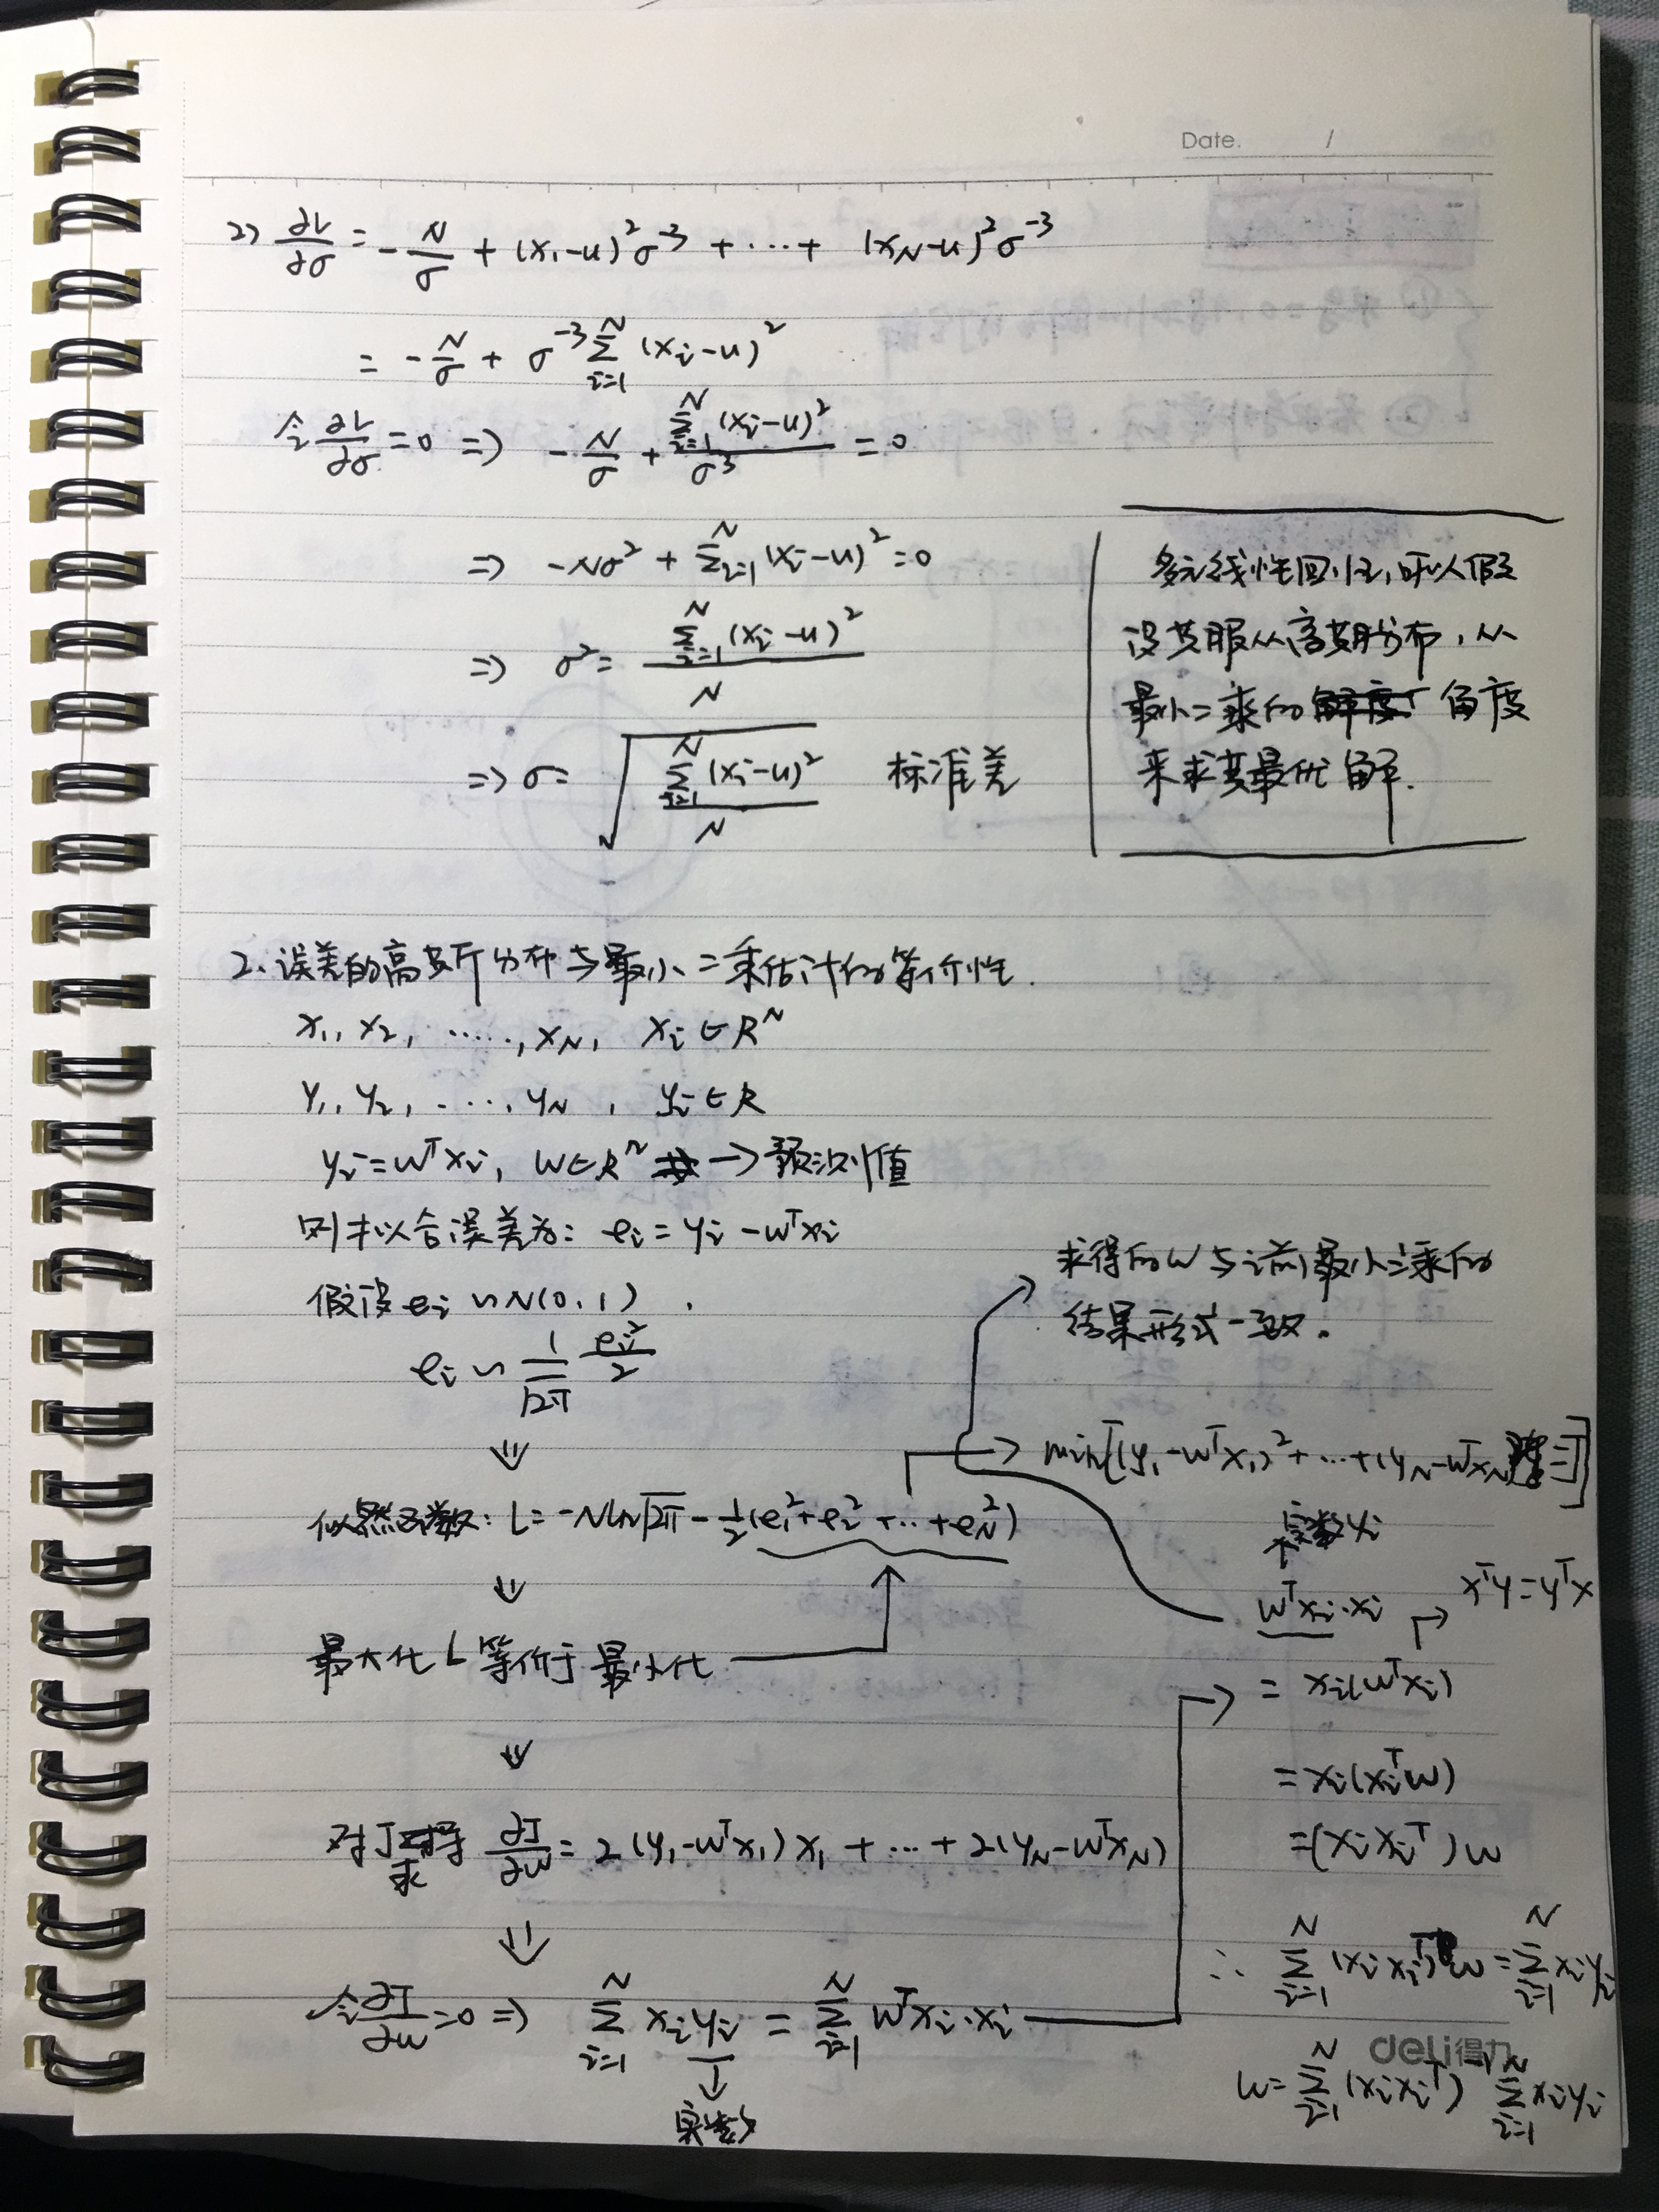 Date. /
2) ∂L/∂σ = -N/σ + (x₁-u)²σ⁻³ + ... + (x_N-u)²σ⁻³
= -N/σ + σ⁻³ Σ_{i=1}^N (x_i-u)²
令 ∂L/∂σ = 0 => -N/σ + Σ_{i=1}^N (x_i-u)² / σ³ = 0
=> -Nσ² + Σ_{i=1}^N (x_i-u)² = 0
=> σ² = Σ_{i=1}^N (x_i-u)² / N
=> σ = √(Σ_{i=1}^N (x_i-u)² / N) 标准差
多元线性回归,可以假
设其服从高斯分布,从
最小二乘的 角度
来求其最优解.
2. 误差的高斯分布与最小二乘估计的等价性.
x₁, x₂, ....., x_N, x_i ∈ R^N
y₁, y₂, ...., y_N, y_i ∈ R
y_i = w^T x_i, w ∈ R^N → 预测值
则拟合误差为: e_i = y_i - w^T x_i
假设 e_i ~ N(0, 1).
e_i ~ 1/√2π e_i²/2
⇓
似然函数: L = -N ln√2π - ½(e₁² + e₂² + ... + e_N²)
⇓
最大化 L 等价于最小化
⇓
对J求导 ∂J/∂w = 2(y₁-w^T x₁)x₁ + ... + 2(y_N-w^T x_N)
⇓
令 ∂J/∂w = 0 => Σ_{i=1}^N x_i y_i = Σ_{i=1}^N w^T x_i·x_i
↓
实数
求得的w与之前最小二乘的
结果形式一致.
→ min[(y₁-w^T x₁)² + ... + (y_N-w^T x_N)² = J]
实数 y_i
↑
w^T x_i·x_i → x^T y = y^T x
= x_i(w^T x_i)
= x_i(x_i^T w)
= (x_i x_i^T) w
∴ Σ_{i=1}^N (x_i x_i^T) w = Σ_{i=1}^N x_i y_i
w = Σ_{i=1}^N (x_i x_i^T)⁻¹ Σ_{i=1}^N x_i y_i
deli得力